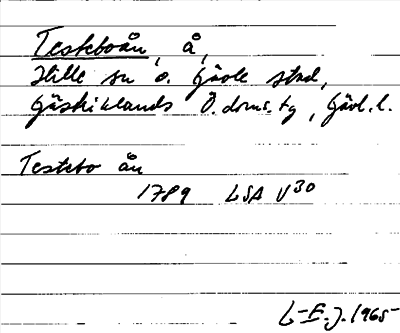 Testeboån, å,
Hille sn o. Gävle stad,
Gästriklands Ö. doms. tg, Gävl. l.
Testebo ån
1789 LSA V30
L-E. J. 1965